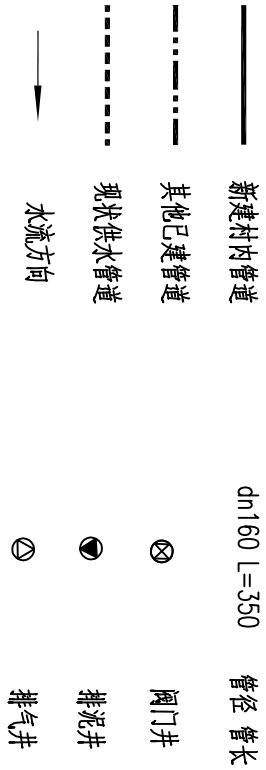 新建村内管道
其他已建管道
现状供水管道
水流方向
dn160 L=350 管径 管长
阀门井
排泥井
排气井